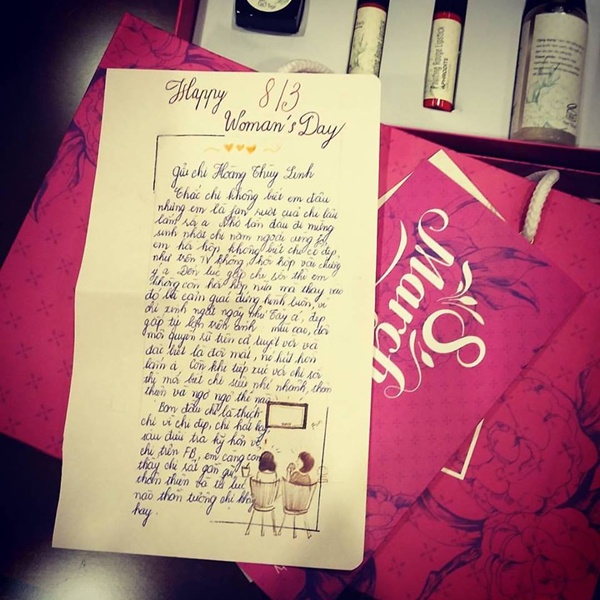 Happy 8/3
Woman's Day
gửi chị Hoàng Thùy Linh
Chắc chị không biết em đâu
nhưng em là fan ruột của chị lâu
lắm rồi ạ. Nhớ lần đầu đi mừng
sinh nhật chị năm ngoái cũng
em hồi hộp không biết chị có đẹp
như trên TV không, khó với chúng
ạ. Đến lúc gặp chị rồi thì em
không còn hồi hộp nữa mà thay vào
đó là cảm giác đứng hình luôn, vì
chị xinh ngất ngây như "Tây" á, đẹp
gấp tỷ lần trên ảnh mũi cao, đôi
môi quyến rũ trên cả tuyệt vời và
đặc biệt là đôi mắt, nó hút hồn
lắm ạ. Còn khi tiếp xúc với chị rồi
thì mới biết chị siêu nhí nhảnh, thân
thiện và ngơ ngơ thế nào
Ban đầu chỉ là thích
chị vì chị đẹp, chị hát hay
sau điều tra kỹ hơn về
chị trên FB, em càng
thấy chị rất gần gũi
thân thiện và từ lúc
nào thần tượng chị không
hay.
8
March
Peeling Rouge Lipstick
APHRODITE